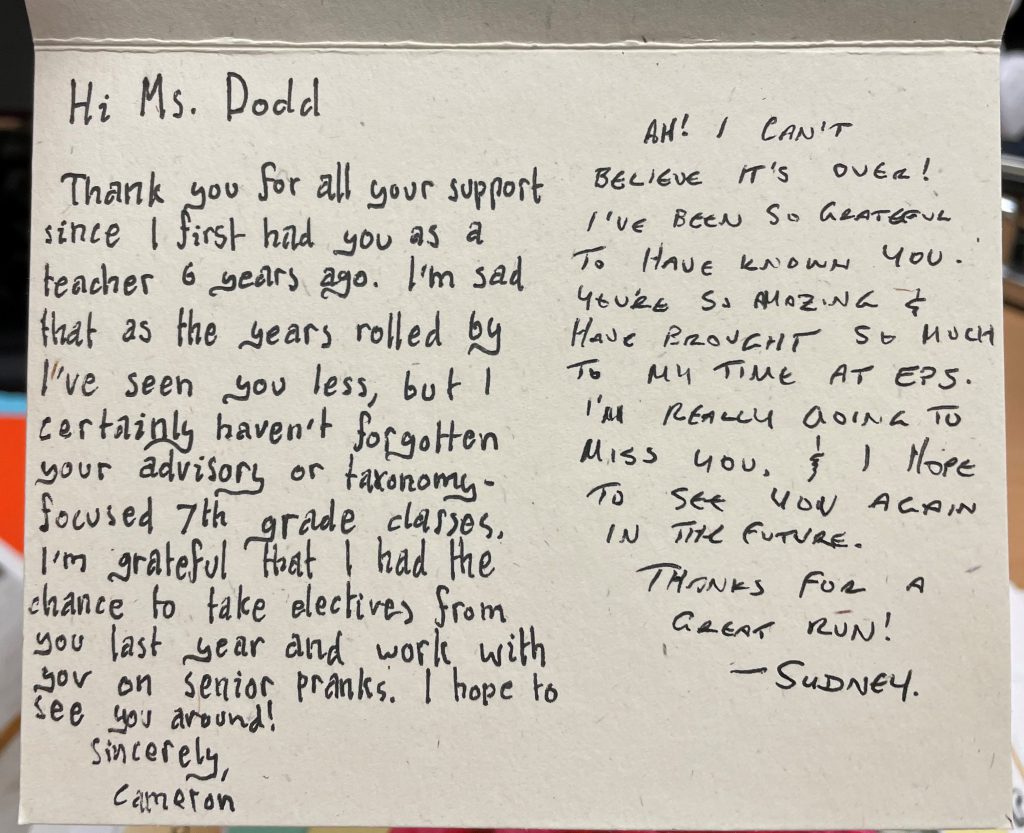 Hi Ms. Dodd
Thank you for all your support
since I first had you as a
teacher 6 years ago. I'm sad
that as the years rolled by
I've seen you less, but I
certainly haven't forgotten
your advisory or taxonomy-
focused 7th grade classes.
I'm grateful that I had the
chance to take electives from
you last year and work with
you on senior pranks. I hope to
see you around!
Sincerely,
Cameron
AH! I CAN'T
BELIEVE IT'S OVER!
I'VE BEEN SO GRATEFUL
TO HAVE KNOWN YOU.
YOU'RE SO AMAZING &
HAVE BROUGHT SO MUCH
TO MY TIME AT EPS.
I'M REALLY GOING TO
MISS YOU, & I HOPE
TO SEE YOU AGAIN
IN THE FUTURE.
THANKS FOR A
GREAT RUN!
—SYDNEY.